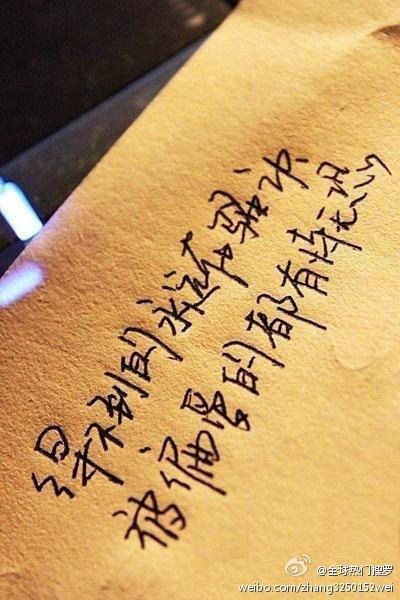 得不到的永远在骚动
被偏爱的都有恃无恐
@全球热门搜罗
weibo.com/zhang3250152wei